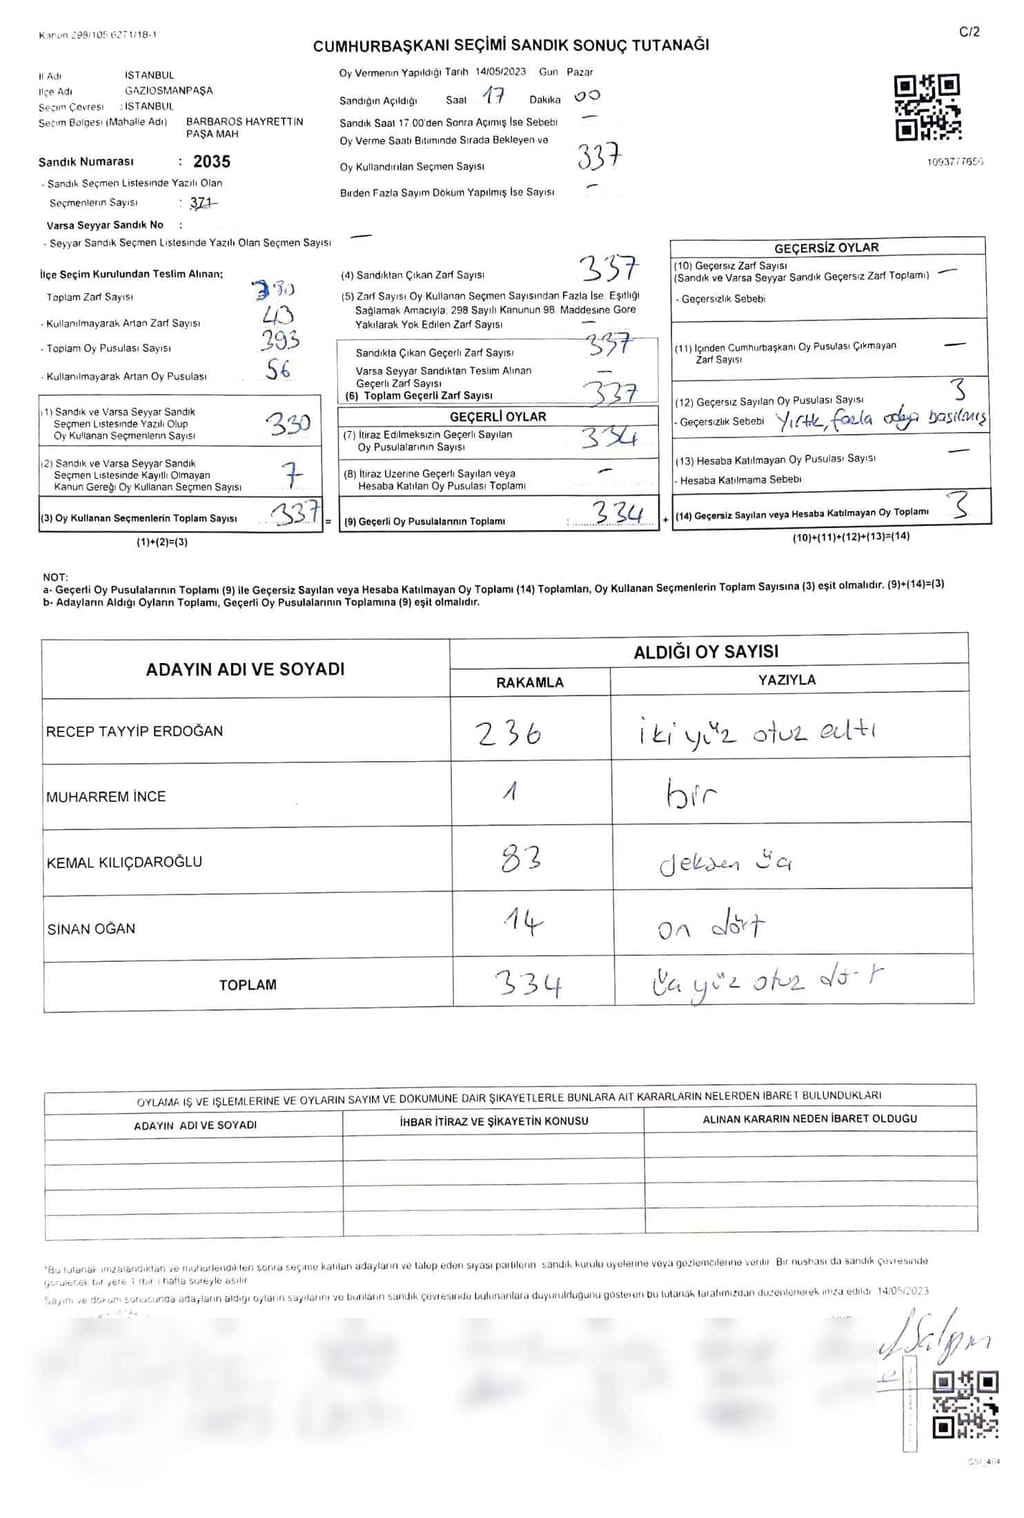 Kanun 298/105 6271/18-1
C/2
CUMHURBAŞKANI SEÇİMİ SANDIK SONUÇ TUTANAĞI
İl Adı İSTANBUL
İlçe Adı GAZİOSMANPAŞA
Seçim Çevresi : İSTANBUL
Seçim Bölgesi (Mahalle Adı) BARBAROS HAYRETTİN PAŞA MAH
Sandık Numarası : 2035
- Sandık Seçmen Listesinde Yazılı Olan
Seçmenlerin Sayısı : 371
Varsa Seyyar Sandık No :
- Seyyar Sandık Seçmen Listesinde Yazılı Olan Seçmen Sayısı —
Oy Vermenin Yapıldığı Tarih 14/05/2023 Gün Pazar
Sandığın Açıldığı Saat 17 Dakika 00
Sandık Saat 17 00'den Sonra Açımış İse Sebebi —
Oy Verme Saati Bitiminde Sırada Bekleyen ve
Oy Kullandırılan Seçmen Sayısı 337
Birden Fazla Sayım Döküm Yapılmış İse Sayısı —
1093777656
İlçe Seçim Kurulundan Teslim Alınan;
Toplam Zarf Sayısı 380
- Kullanılmayarak Artan Zarf Sayısı 43
- Toplam Oy Pusulası Sayısı 393
- Kullanılmayarak Artan Oy Pusulası 56
(1) Sandık ve Varsa Seyyar Sandık
Seçmen Listesinde Yazılı Olup
Oy Kullanan Seçmenlerin Sayısı 330
(2) Sandık ve Varsa Seyyar Sandık
Seçmen Listesinde Kayıtlı Olmayan
Kanun Gereği Oy Kullanan Seçmen Sayısı 7
(3) Oy Kullanan Seçmenlerin Toplam Sayısı 337 =
(1)+(2)=(3)
(4) Sandıktan Çıkan Zarf Sayısı 337
(5) Zarf Sayısı Oy Kullanan Seçmen Sayısından Fazla İse, Eşitliği
Sağlamak Amacıyla; 298 Sayılı Kanunun 98. Maddesine Göre
Yakılarak Yok Edilen Zarf Sayısı —
Sandıkta Çıkan Geçerli Zarf Sayısı 337
Varsa Seyyar Sandıktan Teslim Alınan
Geçerli Zarf Sayısı —
(6) Toplam Geçerli Zarf Sayısı 337
GEÇERLİ OYLAR
(7) İtiraz Edilmeksizin Geçerli Sayılan
Oy Pusulalarının Sayısı 334
(8) İtiraz Üzerine Geçerli Sayılan veya
Hesaba Katılan Oy Pusulası Toplamı —
(9) Geçerli Oy Pusulalarının Toplamı : 334 +
GEÇERSİZ OYLAR
(10) Geçersiz Zarf Sayısı
(Sandık ve Varsa Seyyar Sandık Geçersiz Zarf Toplamı) —
- Geçersizlik Sebebi
(11) İçinden Cumhurbaşkanı Oy Pusulası Çıkmayan
Zarf Sayısı —
(12) Geçersiz Sayılan Oy Pusulası Sayısı 3
- Geçersizlik Sebebi Yırtık, fazla adaya basılmış
(13) Hesaba Katılmayan Oy Pusulası Sayısı —
- Hesaba Katılmama Sebebi
(14) Geçersiz Sayılan veya Hesaba Katılmayan Oy Toplamı 3
(10)+(11)+(12)+(13)=(14)
NOT:
a- Geçerli Oy Pusulalarının Toplamı (9) ile Geçersiz Sayılan veya Hesaba Katılmayan Oy Toplamı (14) Toplamları, Oy Kullanan Seçmenlerin Toplam Sayısına (3) eşit olmalıdır. (9)+(14)=(3)
b- Adayların Aldığı Oyların Toplamı, Geçerli Oy Pusulalarının Toplamına (9) eşit olmalıdır.
ADAYIN ADI VE SOYADI
ALDIĞI OY SAYISI
RAKAMLA YAZIYLA
RECEP TAYYİP ERDOĞAN 236 iki yüz otuz altı
MUHARREM İNCE 1 bir
KEMAL KILIÇDAROĞLU 83 seksen üç
SİNAN OĞAN 14 on dört
TOPLAM 334 Üç yüz otuz dört
OYLAMA İŞ VE İŞLEMLERİNE VE OYLARIN SAYIM VE DÖKÜMÜNE DAİR ŞİKAYETLERLE BUNLARA AİT KARARLARIN NELERDEN İBARET BULUNDUKLARI
ADAYIN ADI VE SOYADI İHBAR İTİRAZ VE ŞİKAYETİN KONUSU ALINAN KARARIN NEDEN İBARET OLDUĞU
*Bu tutanak imzalandıktan ve mühürlendikten sonra seçime katılan adayların ve talep eden siyasi partilerin sandık kurulu üyelerine veya gözlemcilerine verilir Bir nüshası da sandık çevresinde
görülecek bir yere 1 (bir) hafta süreyle asılır
Sayım ve döküm sonucunda adayların aldığı oyların sayılarını ve bunların sandık çevresinde bulunanlara duyurulduğunu gösteren bu tutanak tarafımızdan düzenlenerek imza edildi 14/05/2023